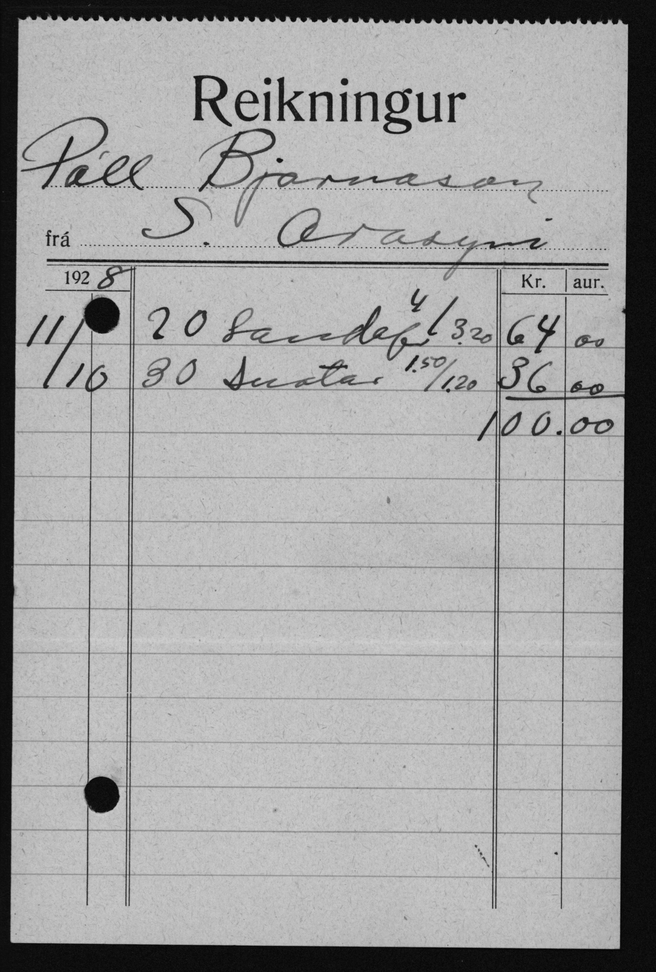 Reikningur
Páll Bjarnason
frá S. Arasyni
1928 Kr. aur.
11/ 20 4/3.20 64 00
/10 30 1.50/1.20 36 00
100.00